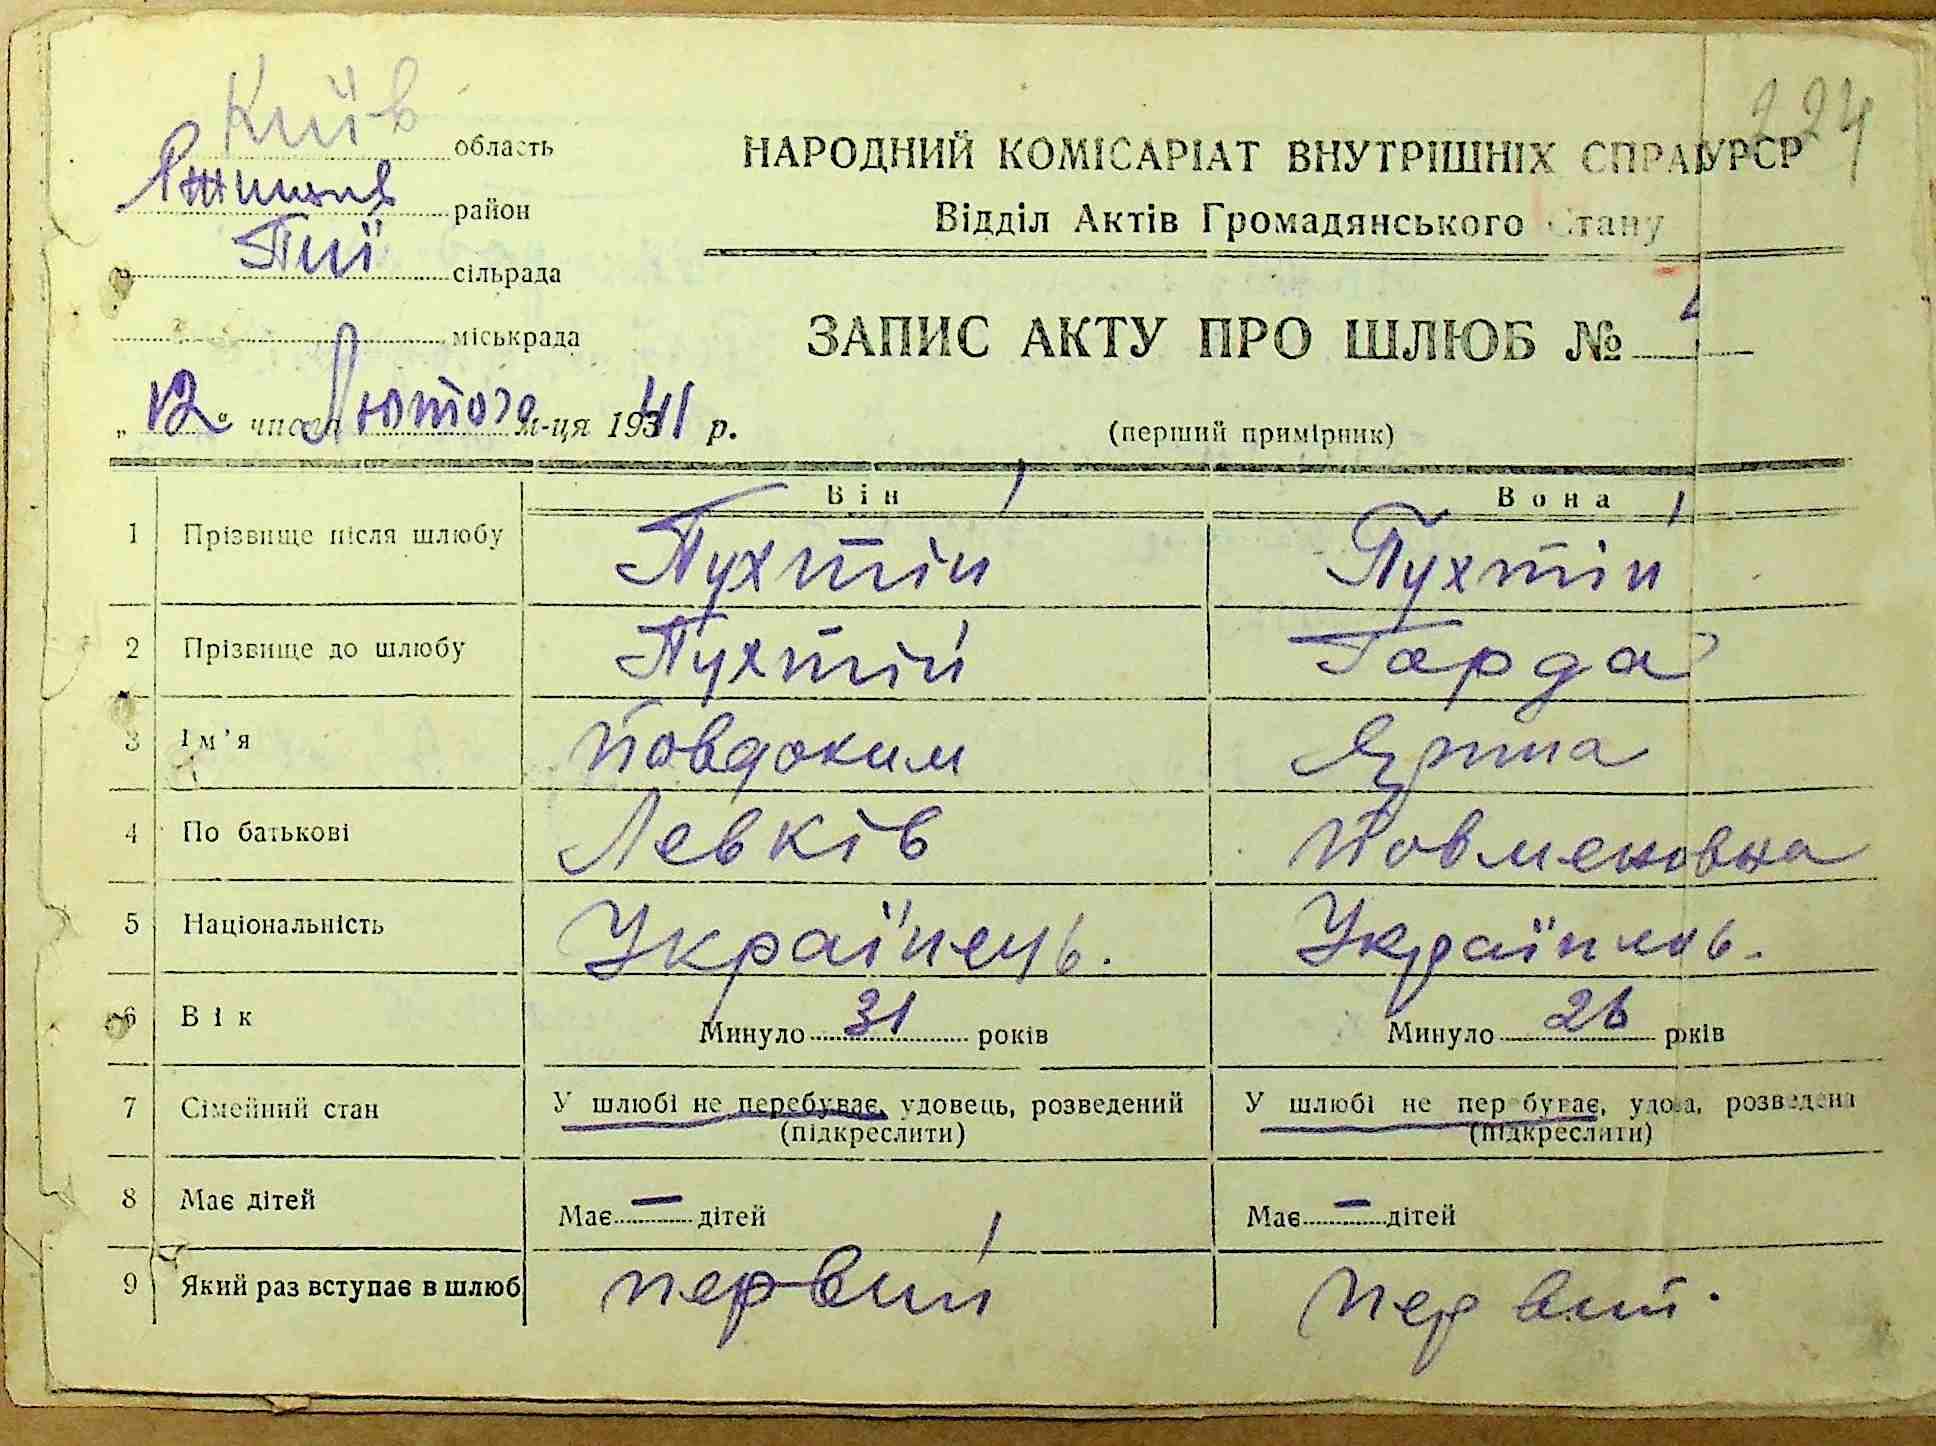 224
Київ область
Ржищів район
Пиї сільрада
міськрада
НАРОДНИЙ КОМІСАРІАТ ВНУТРІШНІХ СПРАВ УРСР
Відділ Актів Громадянського Стану
ЗАПИС АКТУ ПРО ШЛЮБ №
„12“ числа Лютого м-ця 1941 р.
(перший примірник)
Він Вона
1 Прізвище після шлюбу Пухтій Пухтій
2 Прізвище до шлюбу Пухтій Гарда
3 Ім'я Йовдоким Ярина
4 По батькові Левків Йовменовна
5 Національність Українець. Українець.
6 Вік Минуло 31 років Минуло 26 років
7 Сімейний стан У шлюбі не перебуває, удовець, розведений У шлюбі не перебуває, удова, розведена
(підкреслити) (підкреслити)
8 Має дітей Має — дітей Має — дітей
9 Який раз вступає в шлюб первий первий.